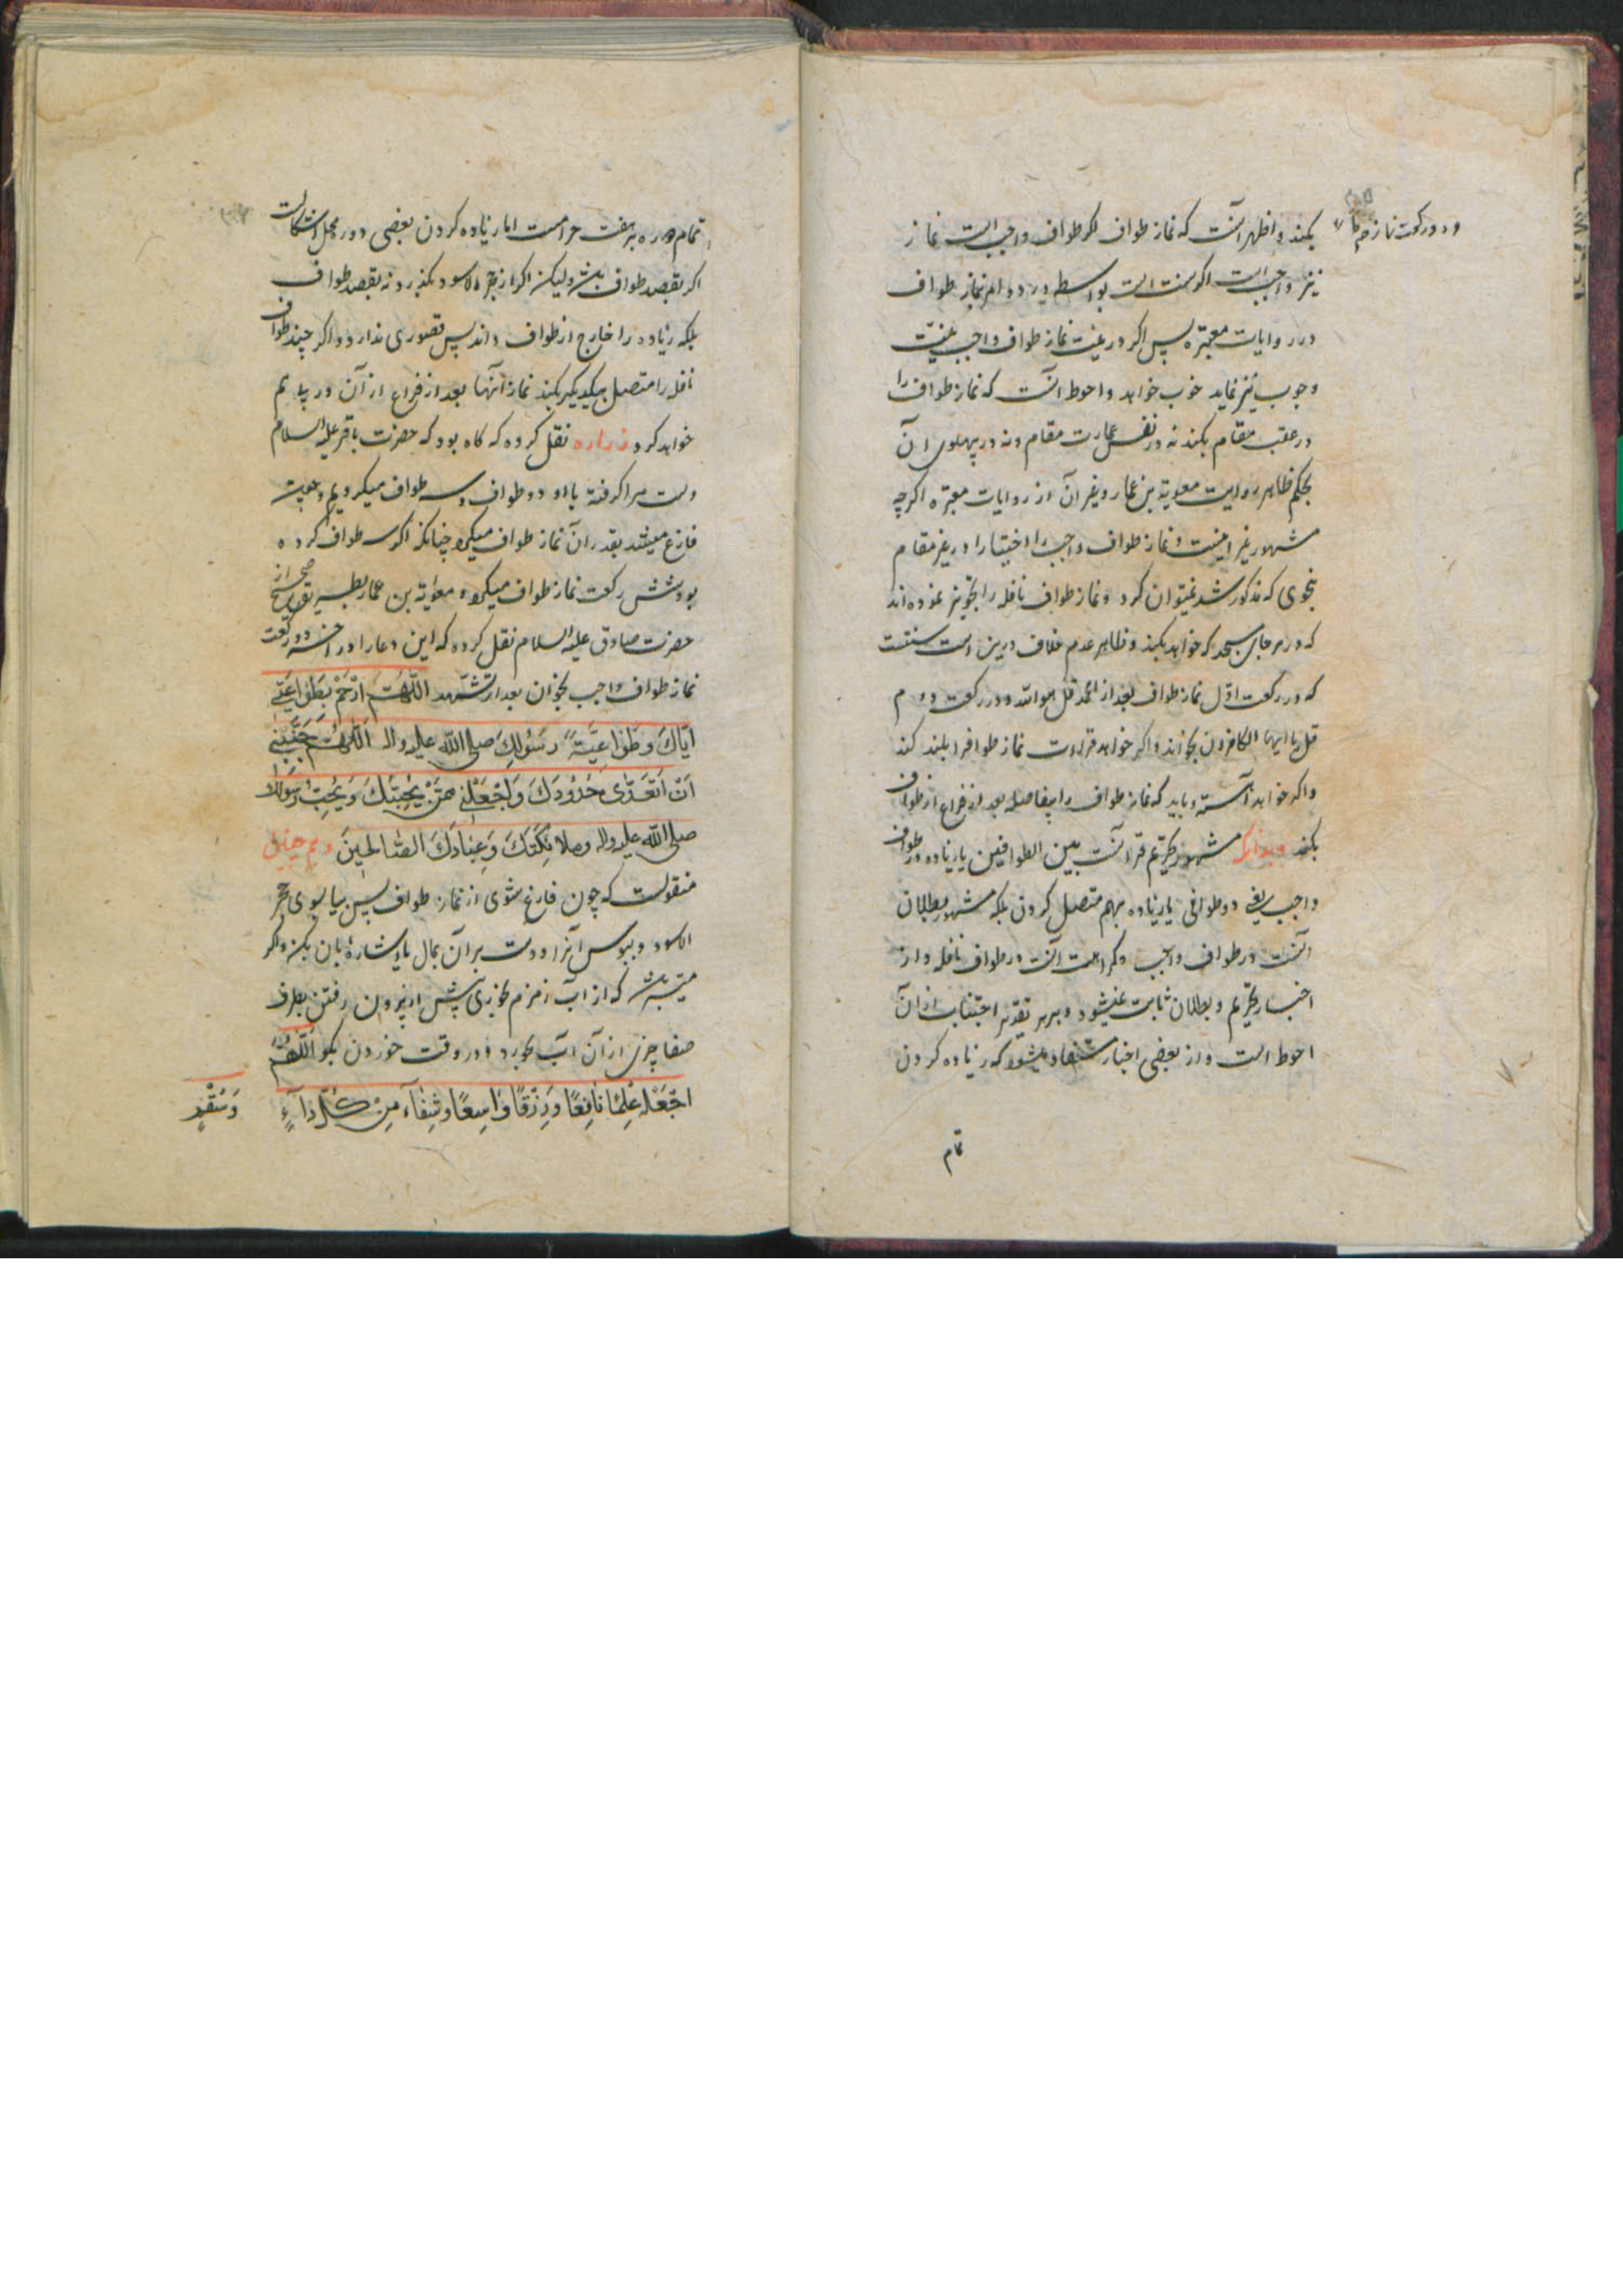 و دو رکعت نماز هم
بکند و اظهر آنست که نماز طواف اگر طواف واجب است نماز
نیز واجب است اگر سنت است بواسطه ورود امر بنماز طواف
در روایات معتبره پس اگر در نیت نماز طواف واجب نیت
وجوب نیز نماید خوب خواهد و احوط آنست که نماز طواف را
در عقب مقام بکند نه در نفس عمارت مقام و نه در پهلوی آن
بحکم ظاهر روایت معویة بن عمار و غیر آن از روایات معتبره اگرچه
مشهور غیر اینست و نماز طواف واجب را اختیارا در غیر مقام
بنحوی که مذکور شد نمیتوان کرد و نماز طواف نافله را تجویز نموده‌اند
که در هر جای مسجد که خواهد بکند و ظاهر عدم خلاف درین است سنتست
که در رکعت اول نماز طواف بعد از الحمد قل هو الله و در رکعت دوم
قل یا ایها الکافرون بخواند و اگر خواهد قراءت نماز طوافرا بلند کند
و اگر خواهد آهسته و باید که نماز طواف را بیفاصله بعد از فراغ از طواف
بکند و بدانکه مشهور تحریم قرانست بین الطوافین یا زیاده در طواف
واجب یعنی دو طوافی یا زیاده بهم متصل کردن بلکه مشهور بطلان
آنست در طواف واجب و کراهت آنست در طواف نافله و از
اخبار تحریم و بطلان ثابت نمیشود و بر هر تقدیر اجتناب از آن
احوط است و از بعضی اخبار مستفاد میشود که زیاده کردن
تمام
تمام دوره بر هفت حرامست اما زیاده کردن بعضی دور محل اشکالست
اگر بقصد طواف باشد ولیکن اگر از حجر الاسود بگذرد نه بقصد طواف
بلکه زیاده را خارج از طواف داند پس قصوری ندارد و اگر چند طواف
نافله را متصل بیکدیگر بکند نماز آنها بعد از فراغ از آن در پی هم
خواهد کرد زراره نقل کرده که گاه بود که حضرت باقر علیه السلام
دست مرا گرفته با او دو طواف و سه طواف میکردیم و بعد
فارغ میشد بقدر آن نماز طواف میکرد چنانکه اگر سه طواف کرده
بود شش رکعت نماز طواف میکرد و معویة بن عمار بطریق صحیح از
حضرت صادق علیه السلام نقل کرده که این دعا را در آخر دو رکعت
نماز طواف واجب بخوان بعد از تشهد اَللّٰهُمَّ ارْحَمْ بِطَوٰاعِیَتِی
اِیّٰاکَ وَطَوٰاعِیَّةِ رَسُولِکَ صلی الله علیه واله اَللّٰهُمَّ جَنِّبْنِی
اَنْ اَتَعَدّٰی حُدُودَکَ وَاجْعَلْنِی مِمَّنْ یُحِبُّکَ وَیُحِبُّ رَسُولَکَ
صلی الله علیه واله وملائِکَتَکَ وَعِبٰادَکَ الصّٰالِحِینَ و هم چنین
منقولست که چون فارغ شوی از نماز طواف پس بیا بسوی حجر
الاسود و ببوس آنرا و دست بر آن بمال یا اشاره بآن بکن و اگر
میسر باشد که از آب زمزم بخوری پیش از بیرون رفتن بطرف
صفا چیزی از آن آب بخورد و در وقت خوردن بگو اَللّٰهُمَّ
اجْعَلْهُ عِلْمًا نٰافِعًا وَرِزْقًا وٰاسِعًا وَشِفٰآءً مِنْ کُلِّ دٰآءٍ
وَسُقْمٍ